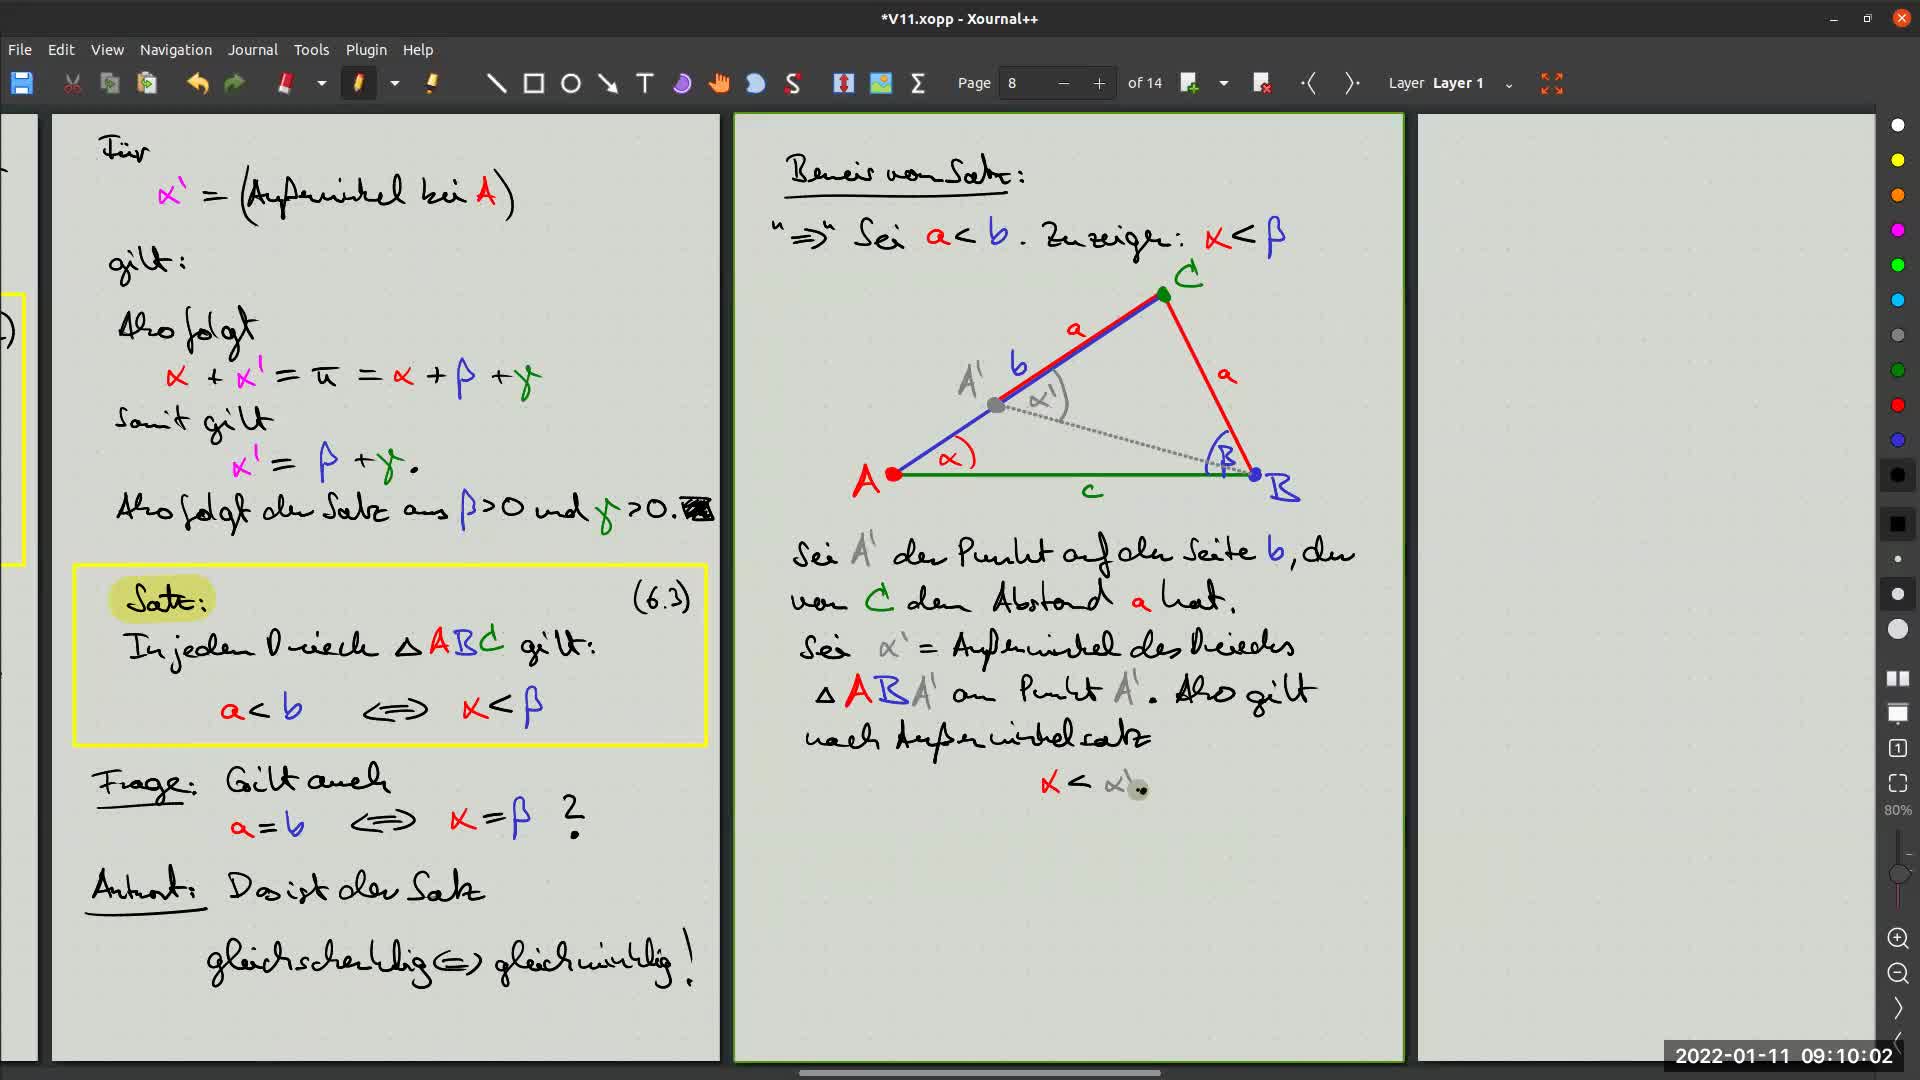 *V11.xopp - Xournal++
File Edit View Navigation Journal Tools Plugin Help
Page 8 of 14 Layer Layer 1
Für
α' = (Außenwinkel bei A)
gilt:
Also folgt
α + α' = π = α + β + γ
Somit gilt
α' = β + γ.
Also folgt der Satz aus β > 0 und γ > 0.
Satz: (6.3)
In jedem Dreieck △ ABC gilt:
a < b ⟺ α < β
Frage: Gilt auch
a = b ⟺ α = β ?
Antwort: Das ist der Satz
gleichschenklig ⟺ gleichwinklig!
Beweis vom Satz:
"⟹" Sei a < b. Zu zeigen: α < β
C
a
b
A'
α'
a
α
β
A
c
B
Sei A' der Punkt auf der Seite b, der
von C den Abstand a hat.
Sei α' = Außenwinkel des Dreiecks
△ ABA' am Punkt A'. Also gilt
nach Außenwinkelsatz
α < α'.
1
80%
2022-01-11 09:10:02